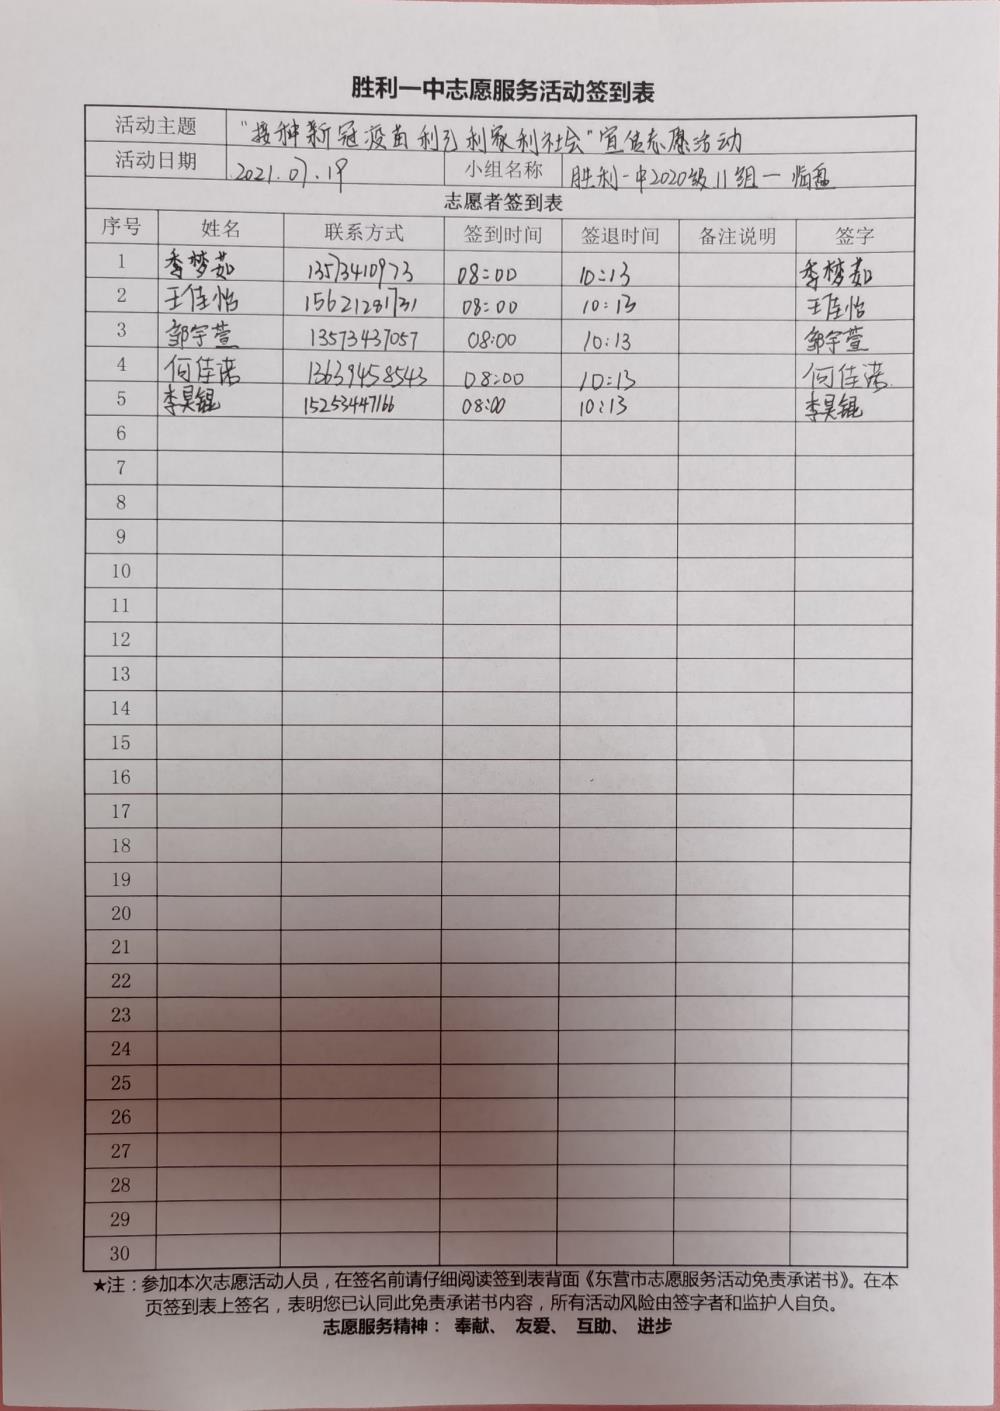 胜利一中志愿服务活动签到表
活动主题 “接种新冠疫苗利己利家利社会”宣传志愿活动
活动日期 2021.07.19 小组名称 胜利一中2020级11组一
志愿者签到表
序号 姓名 联系方式 签到时间 签退时间 备注说明 签字
1 季梦茹 13573410973 08:00 10:13 季梦茹
2 王佳怡 15621281731 08:00 10:13 王佳怡
3 邹宇萱 13573437057 08:00 10:13 邹宇萱
4 何佳诺 13639458543 08:00 10:13 何佳诺
5 李昊锟 15253447166 08:00 10:13 李昊锟
6
7
8
9
10
11
12
13
14
15
16
17
18
19
20
21
22
23
24
25
26
27
28
29
30
★注：参加本次志愿活动人员，在签名前请仔细阅读签到表背面《东营市志愿服务活动免责承诺书》。在本
页签到表上签名，表明您已认同此免责承诺书内容，所有活动风险由签字者和监护人自负。
志愿服务精神： 奉献、 友爱、 互助、 进步